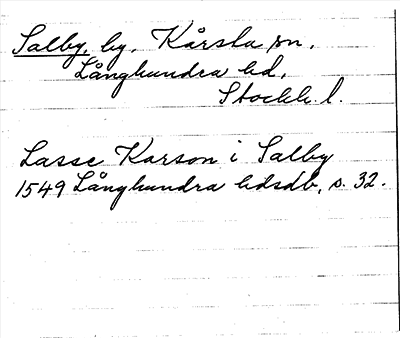 Salby, by, Kårsta sn,
Långhundra hd,
Stockh. l.
Lasse Karson i Salby
1549 Långhundra hdsdb, s. 32.